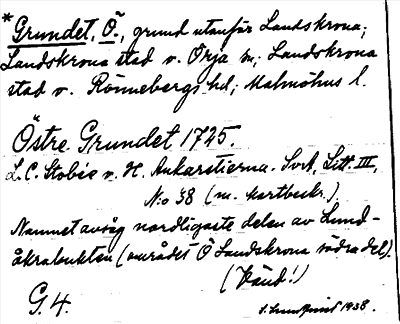 *Grundet, Ö., grund utanför Landskrona;
Landskrona stad o. Örja sn; Landskrona
stad o. Rönnebergs hd; Malmöhus l.
Östre Grundet 1725.
L. C. Stobée o. H. Ankarstierna. SvK, Litt. III,
N:o 38 (m. kartbeskr.)
Namnet avsåg nordligaste delen av Lund-
åkrabukten (området Ö Landskrona södra del).
(Vänd!)
G. 4.
1938.